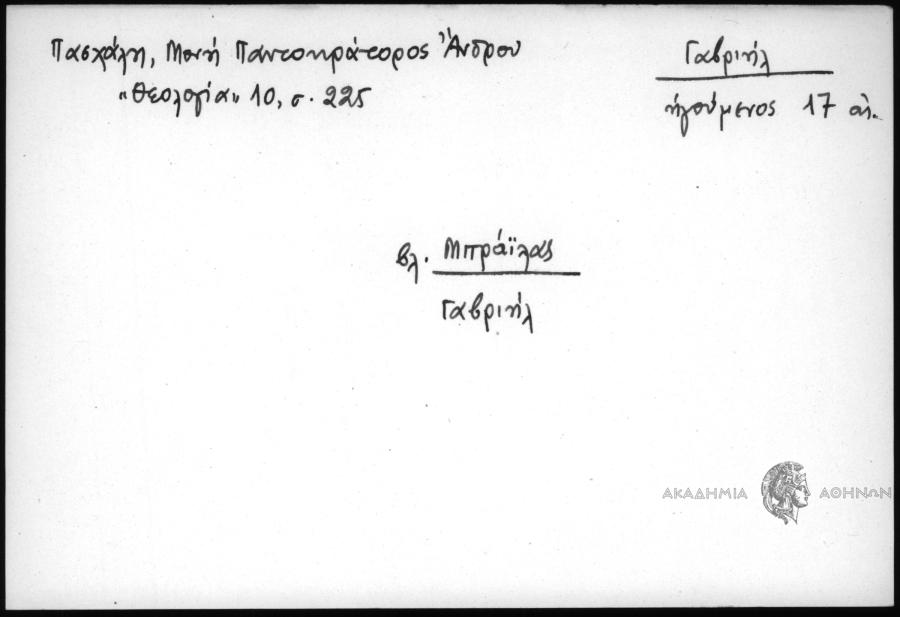 Πασχάλη, Μονή Παντοκράτορος Ἄνδρου
"Θεολογία" 10, σ. 225
Γαβριήλ
ἡγούμενος 17 αἰ.
βλ. Μπράϊλας
Γαβριήλ
ΑΚΑΔΗΜΙΑ ΑΘΗΝΩΝ